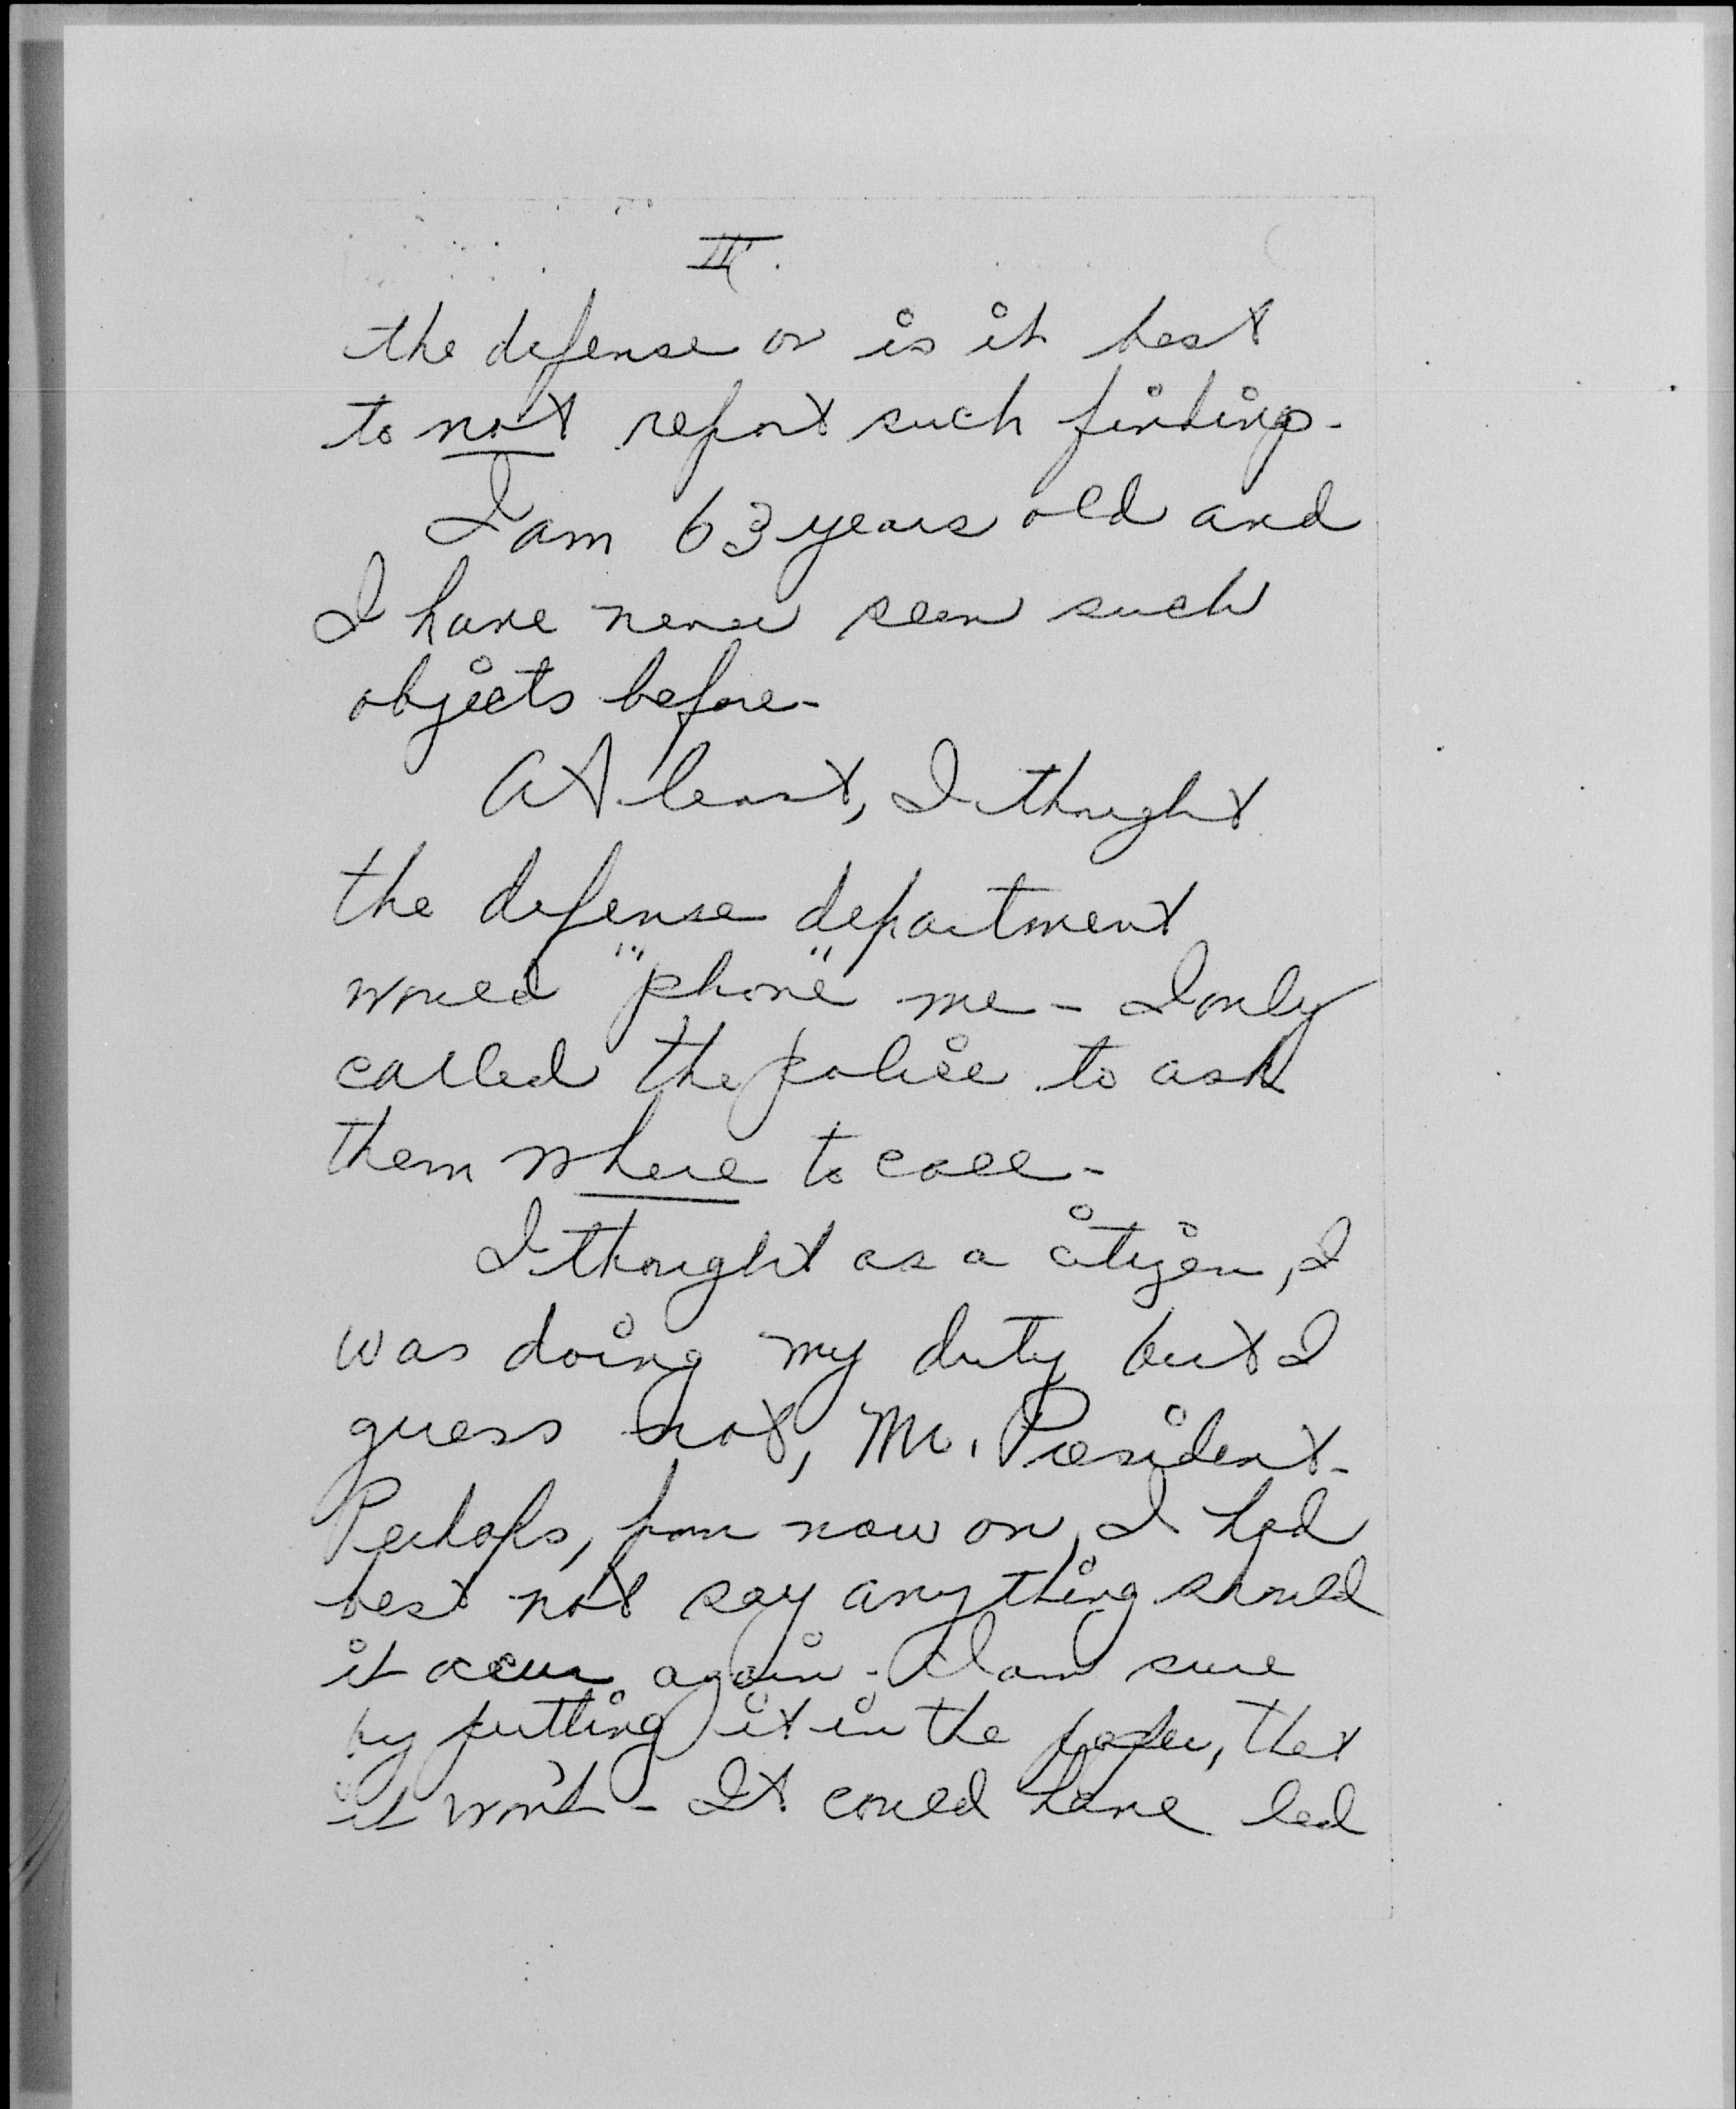 II.
the defense or is it best
to not report such findings-
I am 63 years old and
I have never seen such
objects before-
At least, I thought
the defense department
would "phone" me - I only
called the police to ask
them where to call-
I thought as a citizen, I
was doing my duty but I
guess not, Mr. President-
Perhaps, from now on, I had
best not say anything should
it occur again - I am sure
by putting it in the paper, that
it won't - It could have led